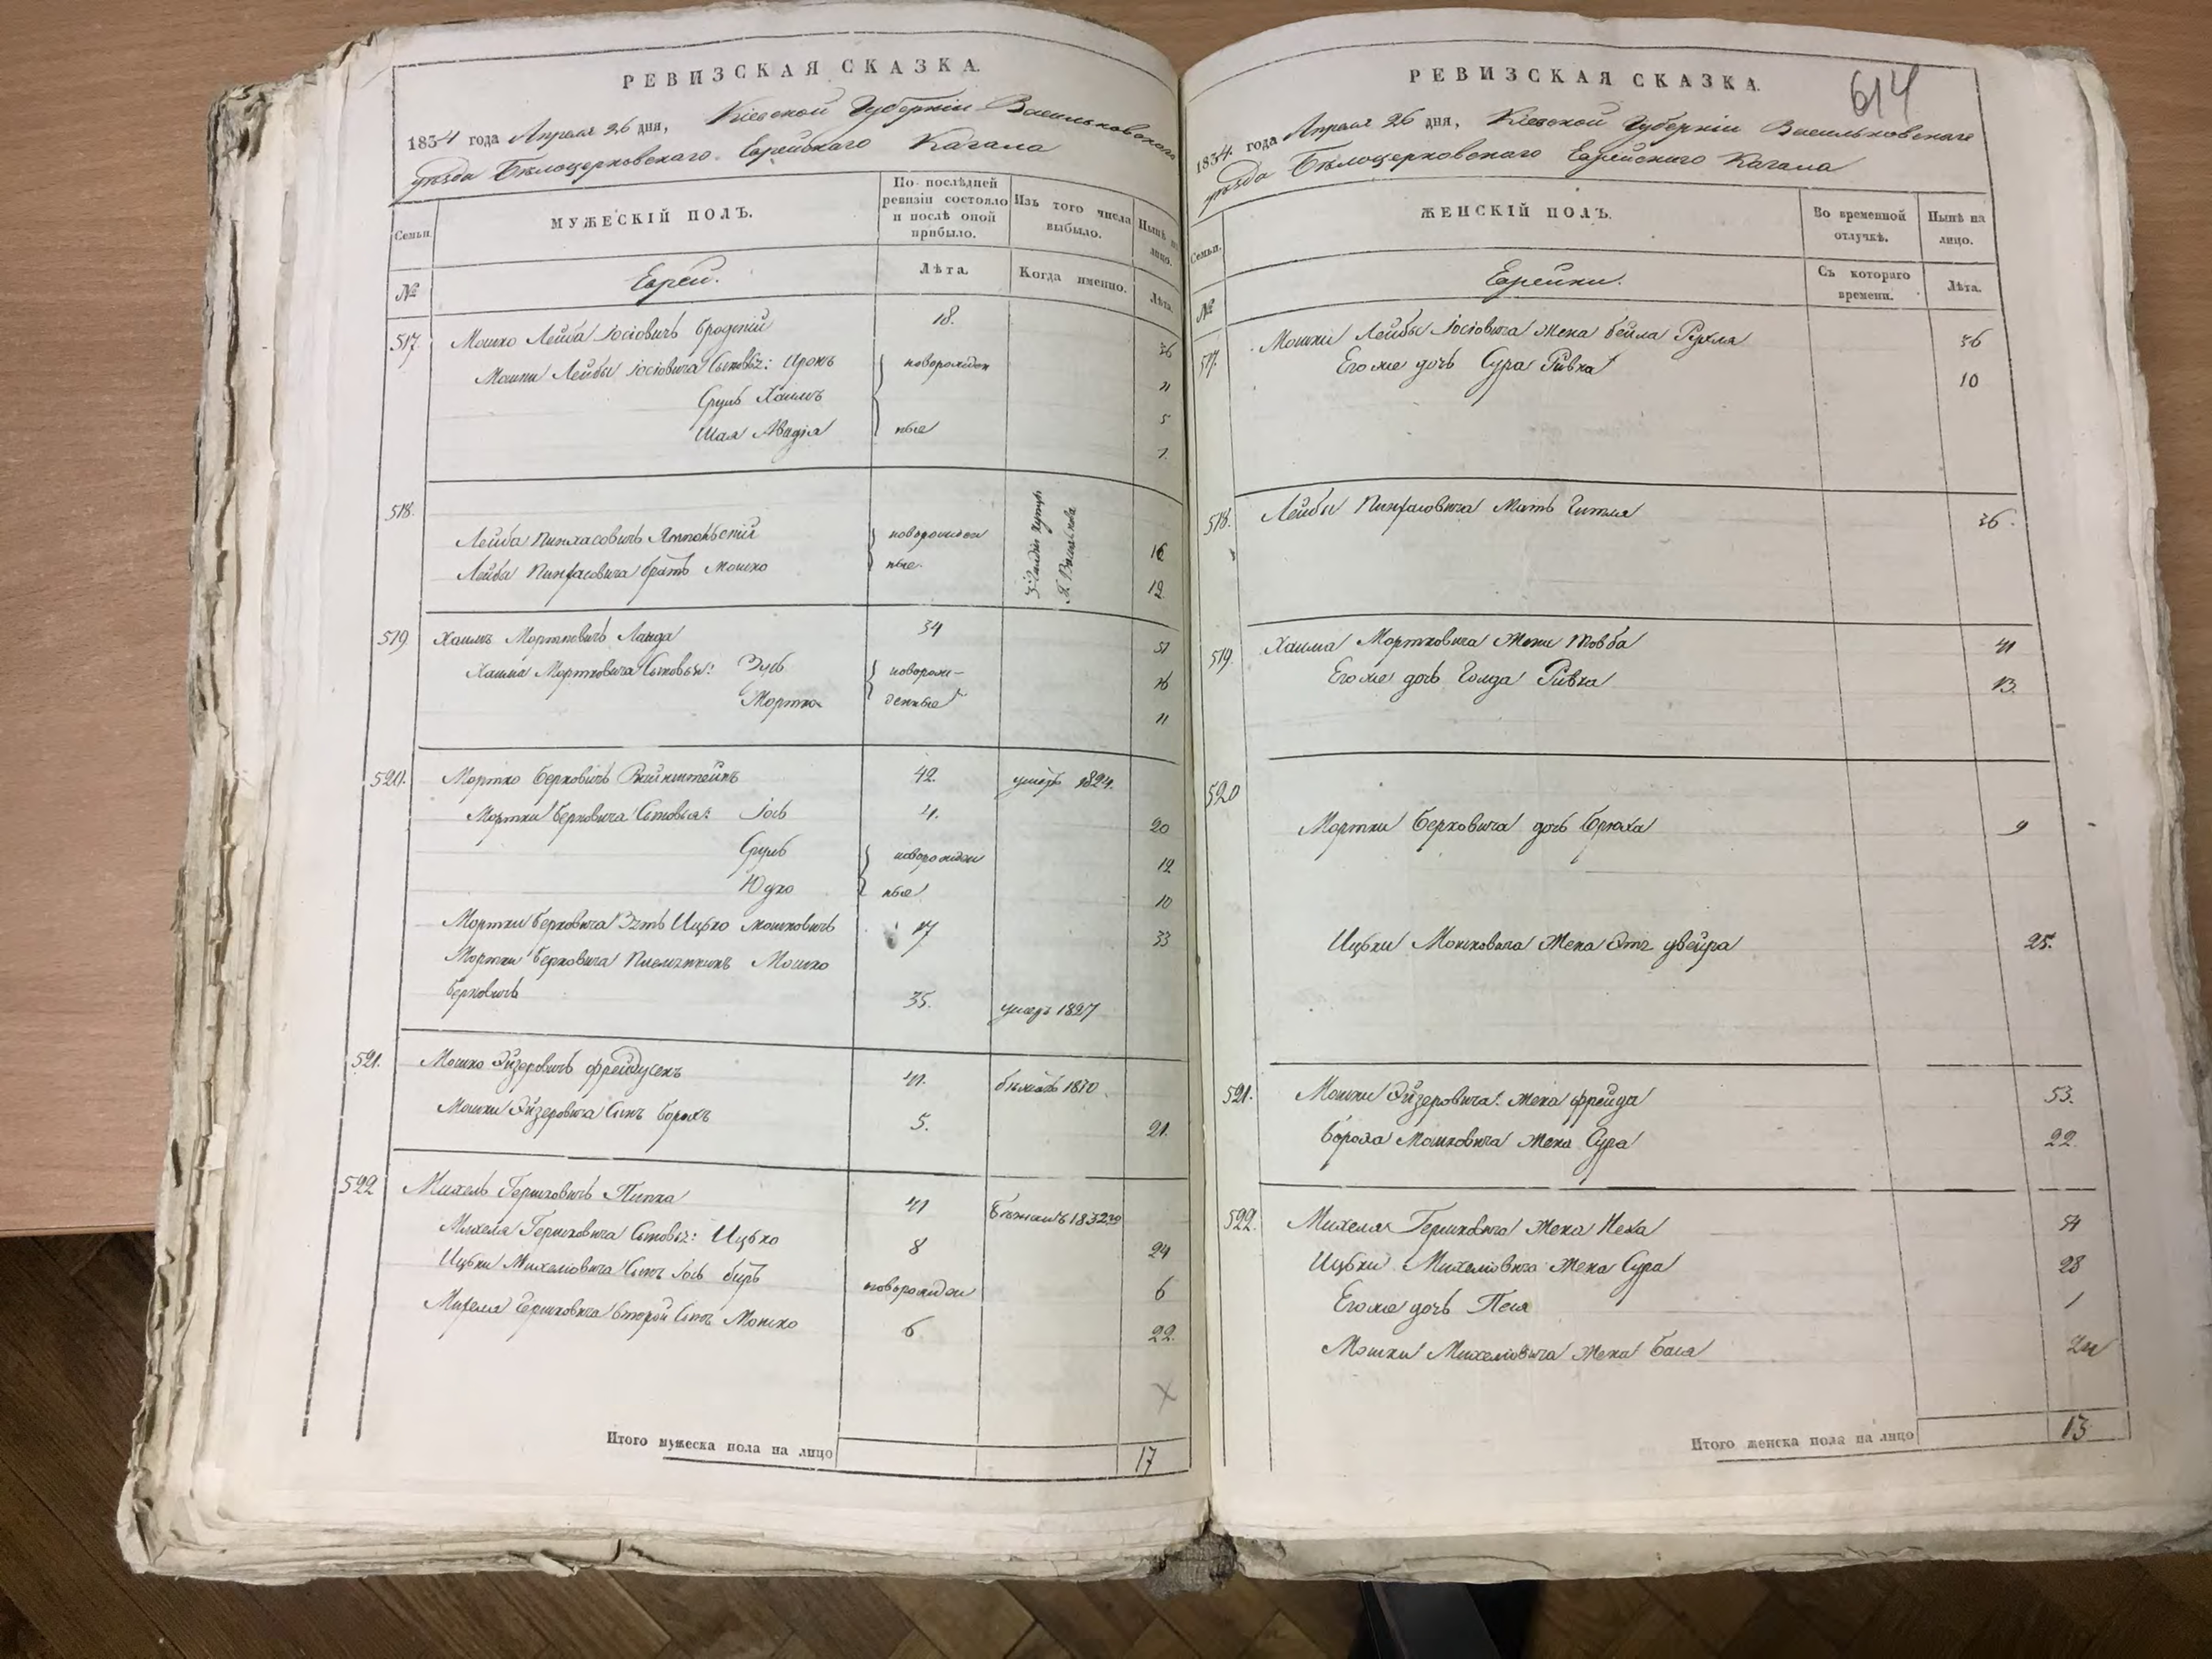 РЕВИЗСКАЯ СКАЗКА.
1834 года Апреля 26 дня, Кіевской Губерніи Васильковскаго
уѣзда Бѣлоцерковскаго Еврейскаго Кагала
Семьи.
МУЖЕСКІЙ ПОЛЪ.
По послѣдней ревизіи состояло и послѣ оной прибыло.
Изъ того числа выбыло.
Нынѣ на лицо.
№
Евреи.
Лѣта.
Когда именно.
Лѣта.
517. Мошко Лейба Іосіовичъ 18. 36
Мошки Лейбы Іосіовича Сыновья: Аронъ новорожден 11
Сруль Хаимъ 5
Шая ные 1.
518.
Лейба Пинхасовичъ новорожден 16
Лейбы Пинхасовича братъ Мошко ные 12
519 Хаимъ Мортковичъ Ланда 34 51
Хаима Мортковича Сыновья: новорож- 16
Мортко денные 11
520. Мортко Берковичъ Вайнштейнъ 42. умеръ 1824.
Мортки Берковича Сыновья: Іось 4. 20
Сруль новорожден 12
Юдко ные 10
Мортки Берковича Зять Ицько Мошковичъ 17 33
Мортки Берковича Племянникъ Мошко
Берковичъ 35. умеръ 1827
521. Мошко Эйзеровичъ 41. бѣжалъ
Мошки Эйзеровича Сынъ Борохъ 5. 21.
522 Михель Гершковичъ Пипка 41 бѣжалъ 1832го
Михеля Гершковича Сыновья: Ицько 8 24
Ицьки Михеліовича Сынъ Іось Беръ новорожден 6
Михеля Гершковича второй Сынъ Мошко 6. 22.
Итого мужеска пола на лицо 17
РЕВИЗСКАЯ СКАЗКА.
614
1834 года Апреля 26 дня, Кіевской Губерніи Васильковскаго
уѣзда Бѣлоцерковскаго Еврейскаго Кагала
Семьи.
ЖЕНСКІЙ ПОЛЪ.
Во временной отлучкѣ.
Нынѣ на лицо.
№
Еврейки.
Съ котораго времени.
Лѣта.
517. Мошки Лейбы Іосіовича жена Бейла Рухля 36
Его же дочь Сура Ривка 10
518. Лейбы Пинхасовича Мать Гитля 36.
519. Хаима Мортковича жена Товба 41
Его же дочь Голда Ривка 13.
520
Мортки Берковича дочь Брюха 9
Ицьки Мошковича жена Двейра 25.
521. Мошки Эйзеровича жена Фрейда 53.
Бороха Мошковича жена Сура 22.
522. Михеля Гершковича жена Неха 54
Ицьки Михеліовича жена Сура 28
Его же дочь Песя 1
Мошки Михеліовича жена Бася 24
Итого женска пола на лицо 13